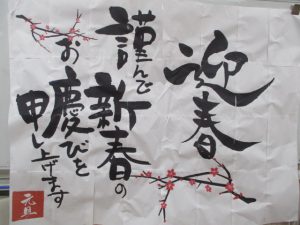 迎春
謹んで
新春の
お慶びを
申し上げます
元旦